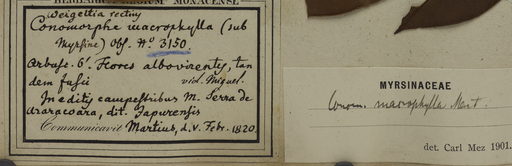 Weigeltia rectius
Conomorphe macrophylla (sub
Myrsine) Obs. No. 3150.
Arbusc. 6'. Flores albovirentes, tan
dem fusci vid. Miquel.
In editis campestribus M. Serra de
Araracoara, dit. Japurensis
Communicavit Martius, d. v. Febr. 1820.
MYRSINACEAE
Conom. macrophylla Mart.
det. Carl Mez 1901.